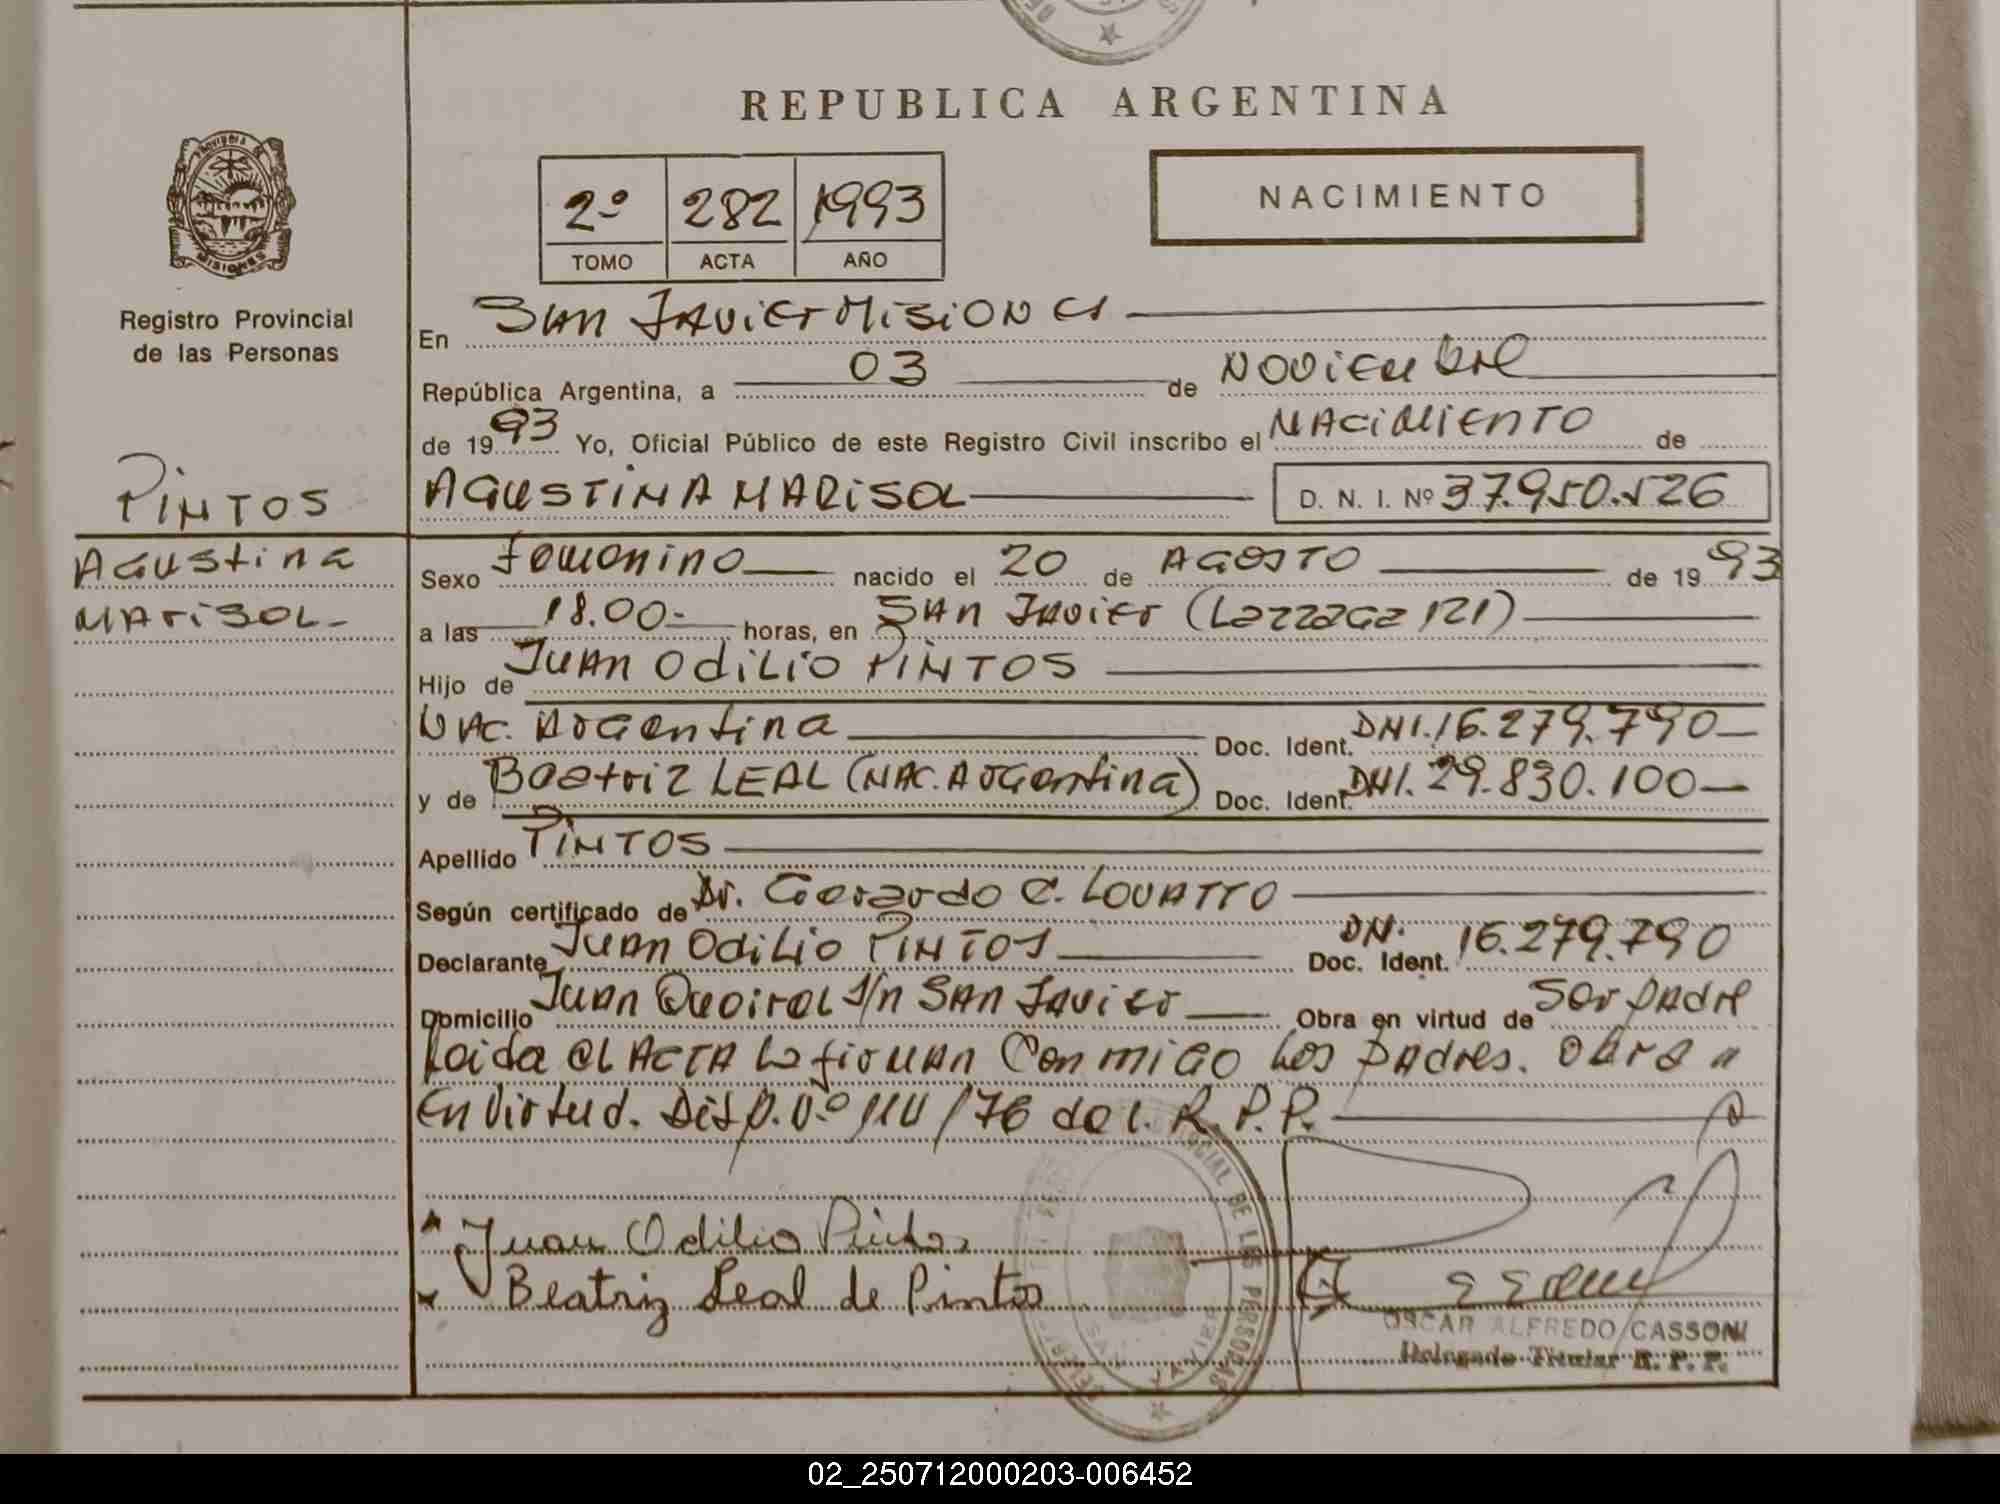 REPUBLICA ARGENTINA
PROVINCIA DE
MISIONES
Registro Provincial
de las Personas
2º 282 1993
TOMO ACTA AÑO
NACIMIENTO
En San Javier Misiones
República Argentina, a 03 de Noviembre
de 1993 Yo, Oficial Público de este Registro Civil inscribo el Nacimiento de
PINTOS
AGUSTINA MARISOL D. N. I. Nº 37.950.526
Agustina
MARISOL
Sexo Femenino nacido el 20 de AGOSTO de 1993
a las 18.00 horas, en San Javier (Lazzaga 121)
Hijo de Juan Odilio PINTOS
Nac. Argentina Doc. Ident. DNI. 16.279.790
y de Beatriz LEAL (Nac. Argentina) Doc. Ident. DNI. 29.830.100
Apellido PINTOS
Según certificado de Dr. Gerardo C. LOVATTO
Declarante Juan Odilio PINTOS Doc. Ident. DN. 16.279.790
Domicilio Juan Queirel s/n San Javier Obra en virtud de Ser padre
Leida el ACTA la firman Conmigo Los padres. Obra "
En Virtud. Disp. Nº /76 del. R.P.P.
Juan Odilio Pintos
Beatriz Leal de Pintos
OSCAR ALFREDO CASSONI
Delegado Titular R. P. P.
02_250712000203-006452